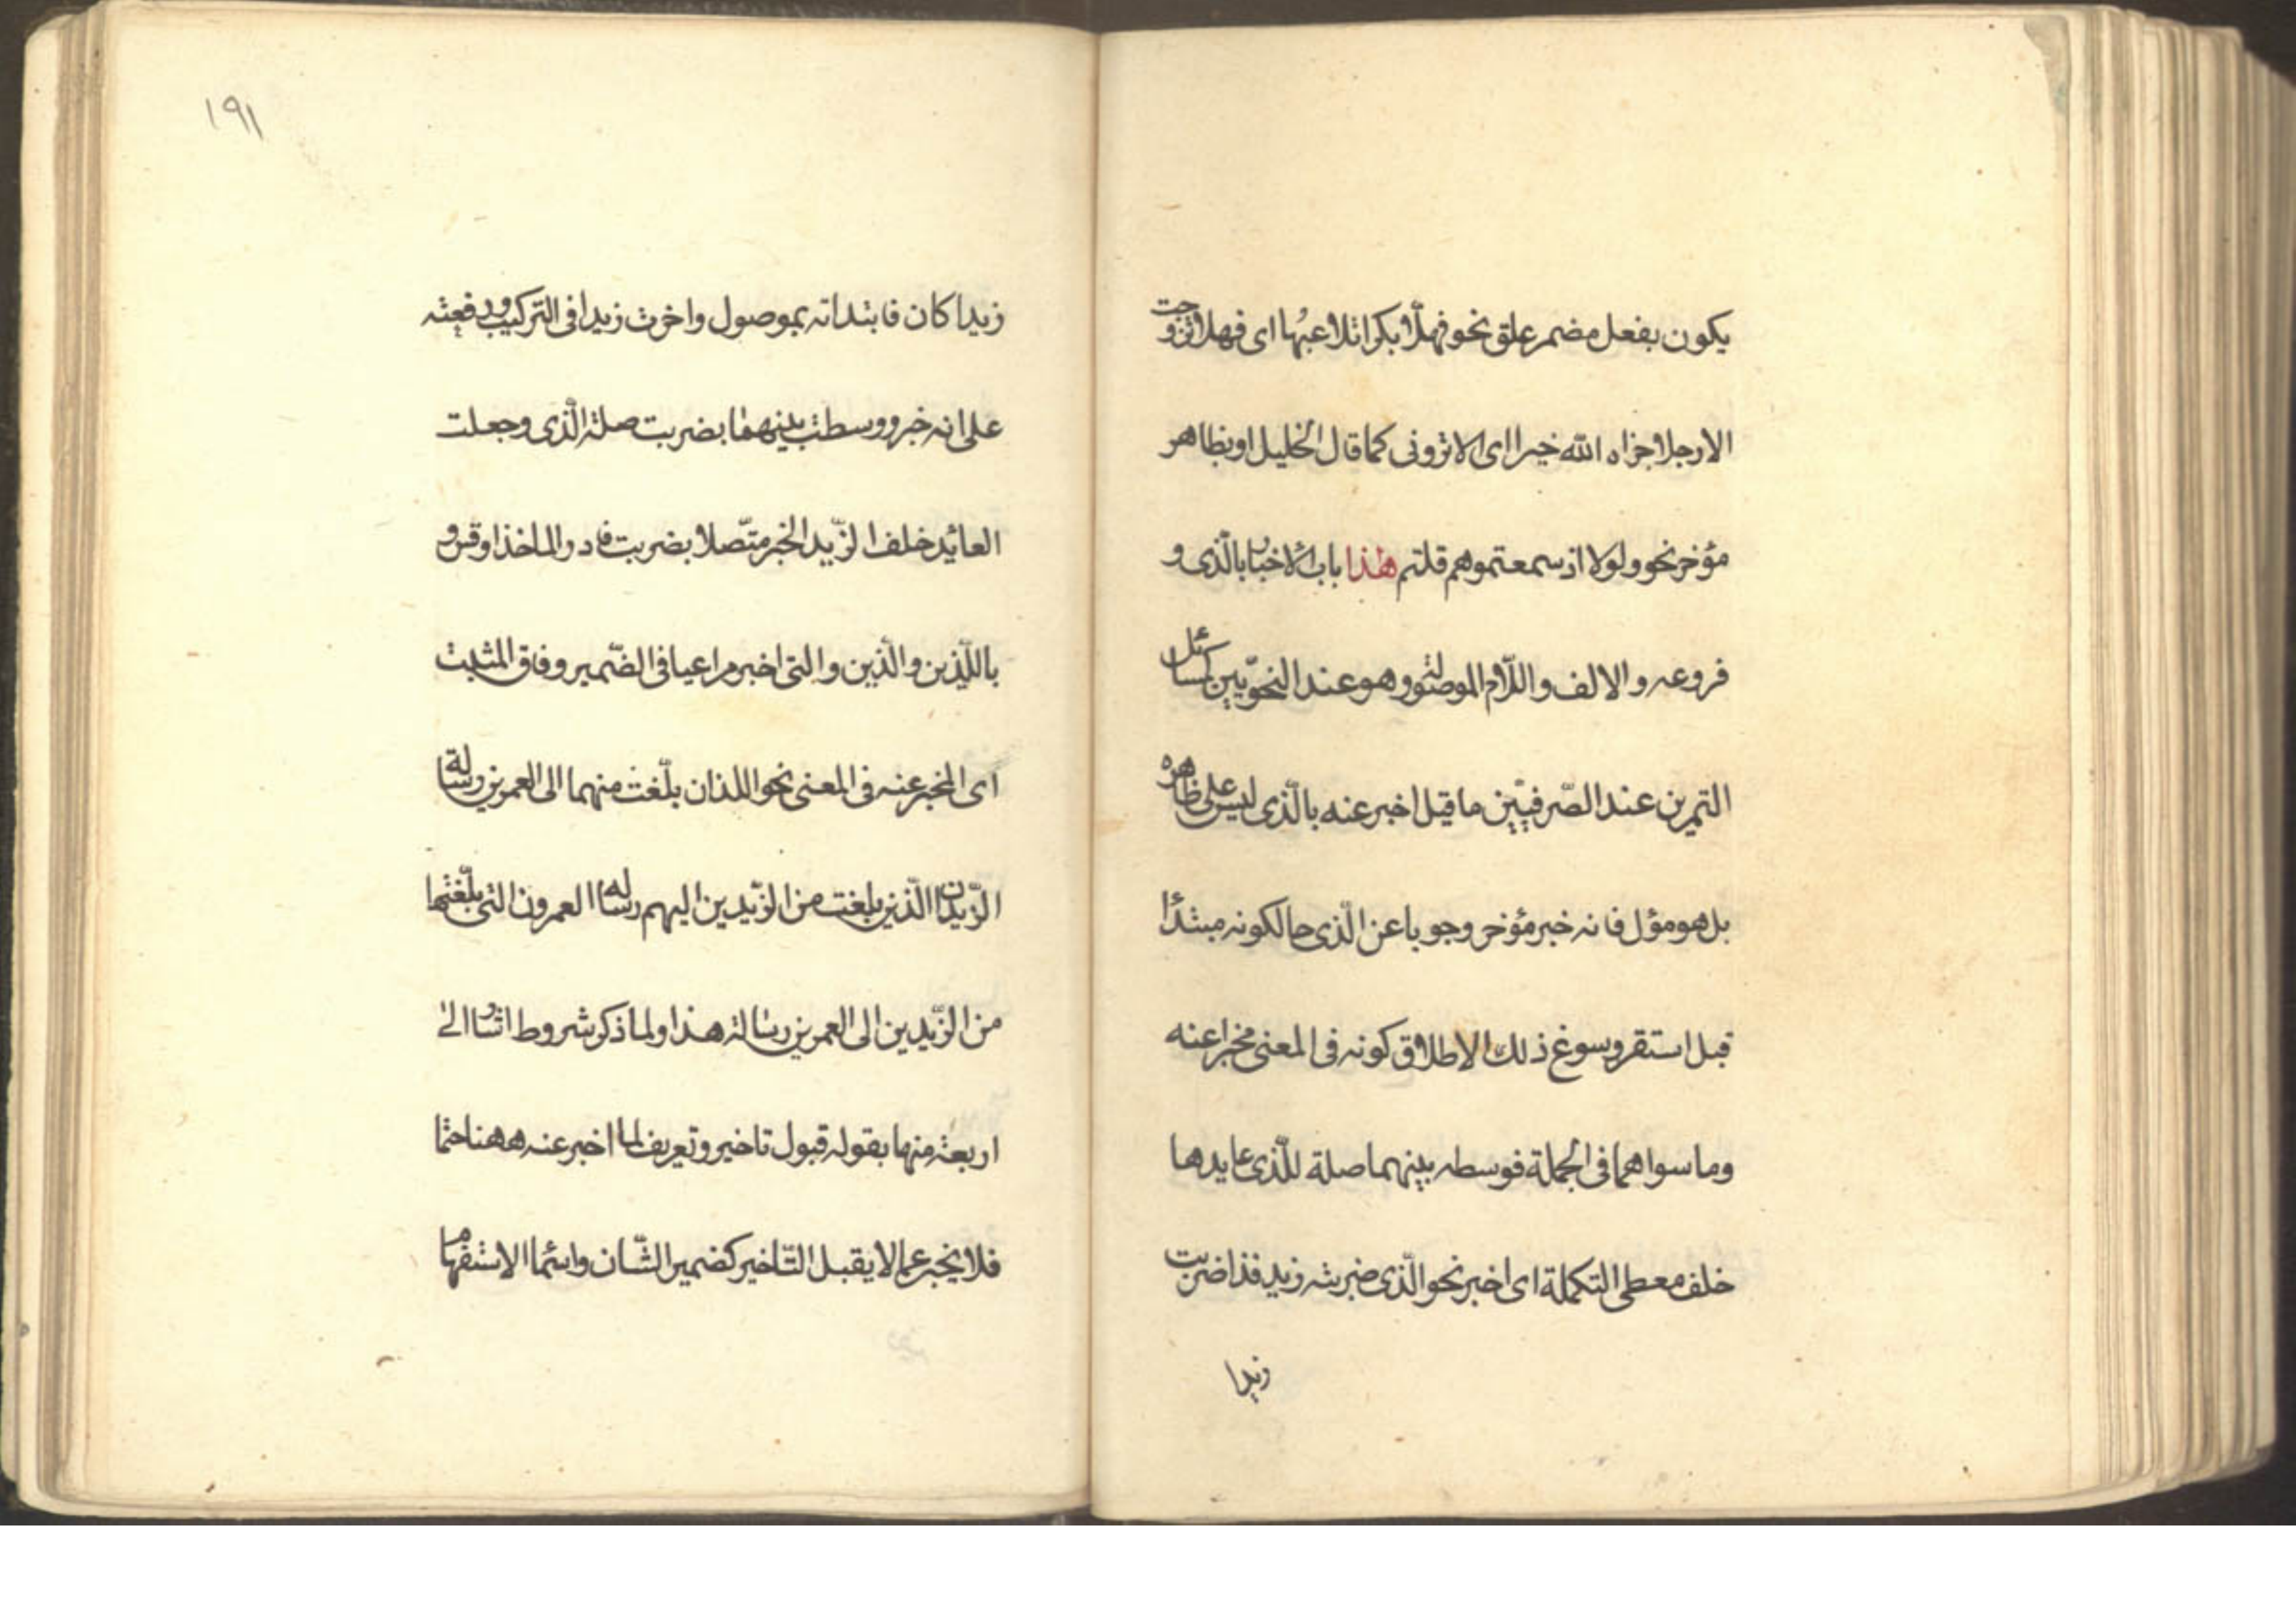 يكون بفعل مضمر علق نحو فهلّا بكرا تلاعبُها اى فهلا تزوجت
الا رجلا جزاه الله خيرا اى الا تروني كما قال الخليل او بظاهر
مؤخر نحو ولولا اذ سمعتموهم قلتم هٰذا باب الاخبار بالّذى و
فروعه والالف واللّام الموصولة وهو عند النحوّيين كمسائل
التمرين عند الصّرفيّين ما قيل اخبر عنه بالّذى ليس على ظاهره
بل هو مؤل فانه خبر مؤخر وجوبا عن الّذى حالكونه مبتدأ
قبل استقر وسوغ ذلك الاطلاق كونه فى المعنى مخبرا عنه
وما سواهما فى الجملة فوسطه بينهما صلة للّذى عايدها
خلف معطى التكملة اى اخبر نحو الّذى ضربته زيد فذا ضربت
زيدا
١٩١
زيدا كان فابتداته بموصول واخرت زيدا فى التركيب ورفعته
على انه خبر ووسطت بينهما بضربت صلة الّذى وجعلت
العائد خلف الزّيد الخبر متّصلا بضربت فادر الماخذا وقس و
باللّذين والّذين والتى اخبر مراعيا فى الضّمير وفاق المثبت
اى المخبر عنه فى المعنى نحو اللذان بلّغت منهما الى العمرين رسالة
الزّيدان الّذين بلغت من الزّيدين اليهم رسالة العمرون التى بلّغتها
من الزّيدين الى العمرين رسالة هذا ولما ذكر شروط اشار الى
اربعة منها بقوله قبول تاخير وتعريف لما اخبر عنه ههنا حتما
فلا يخبر عما لا يقبل التّاخير كضمير الشّان واسما الاستفهام